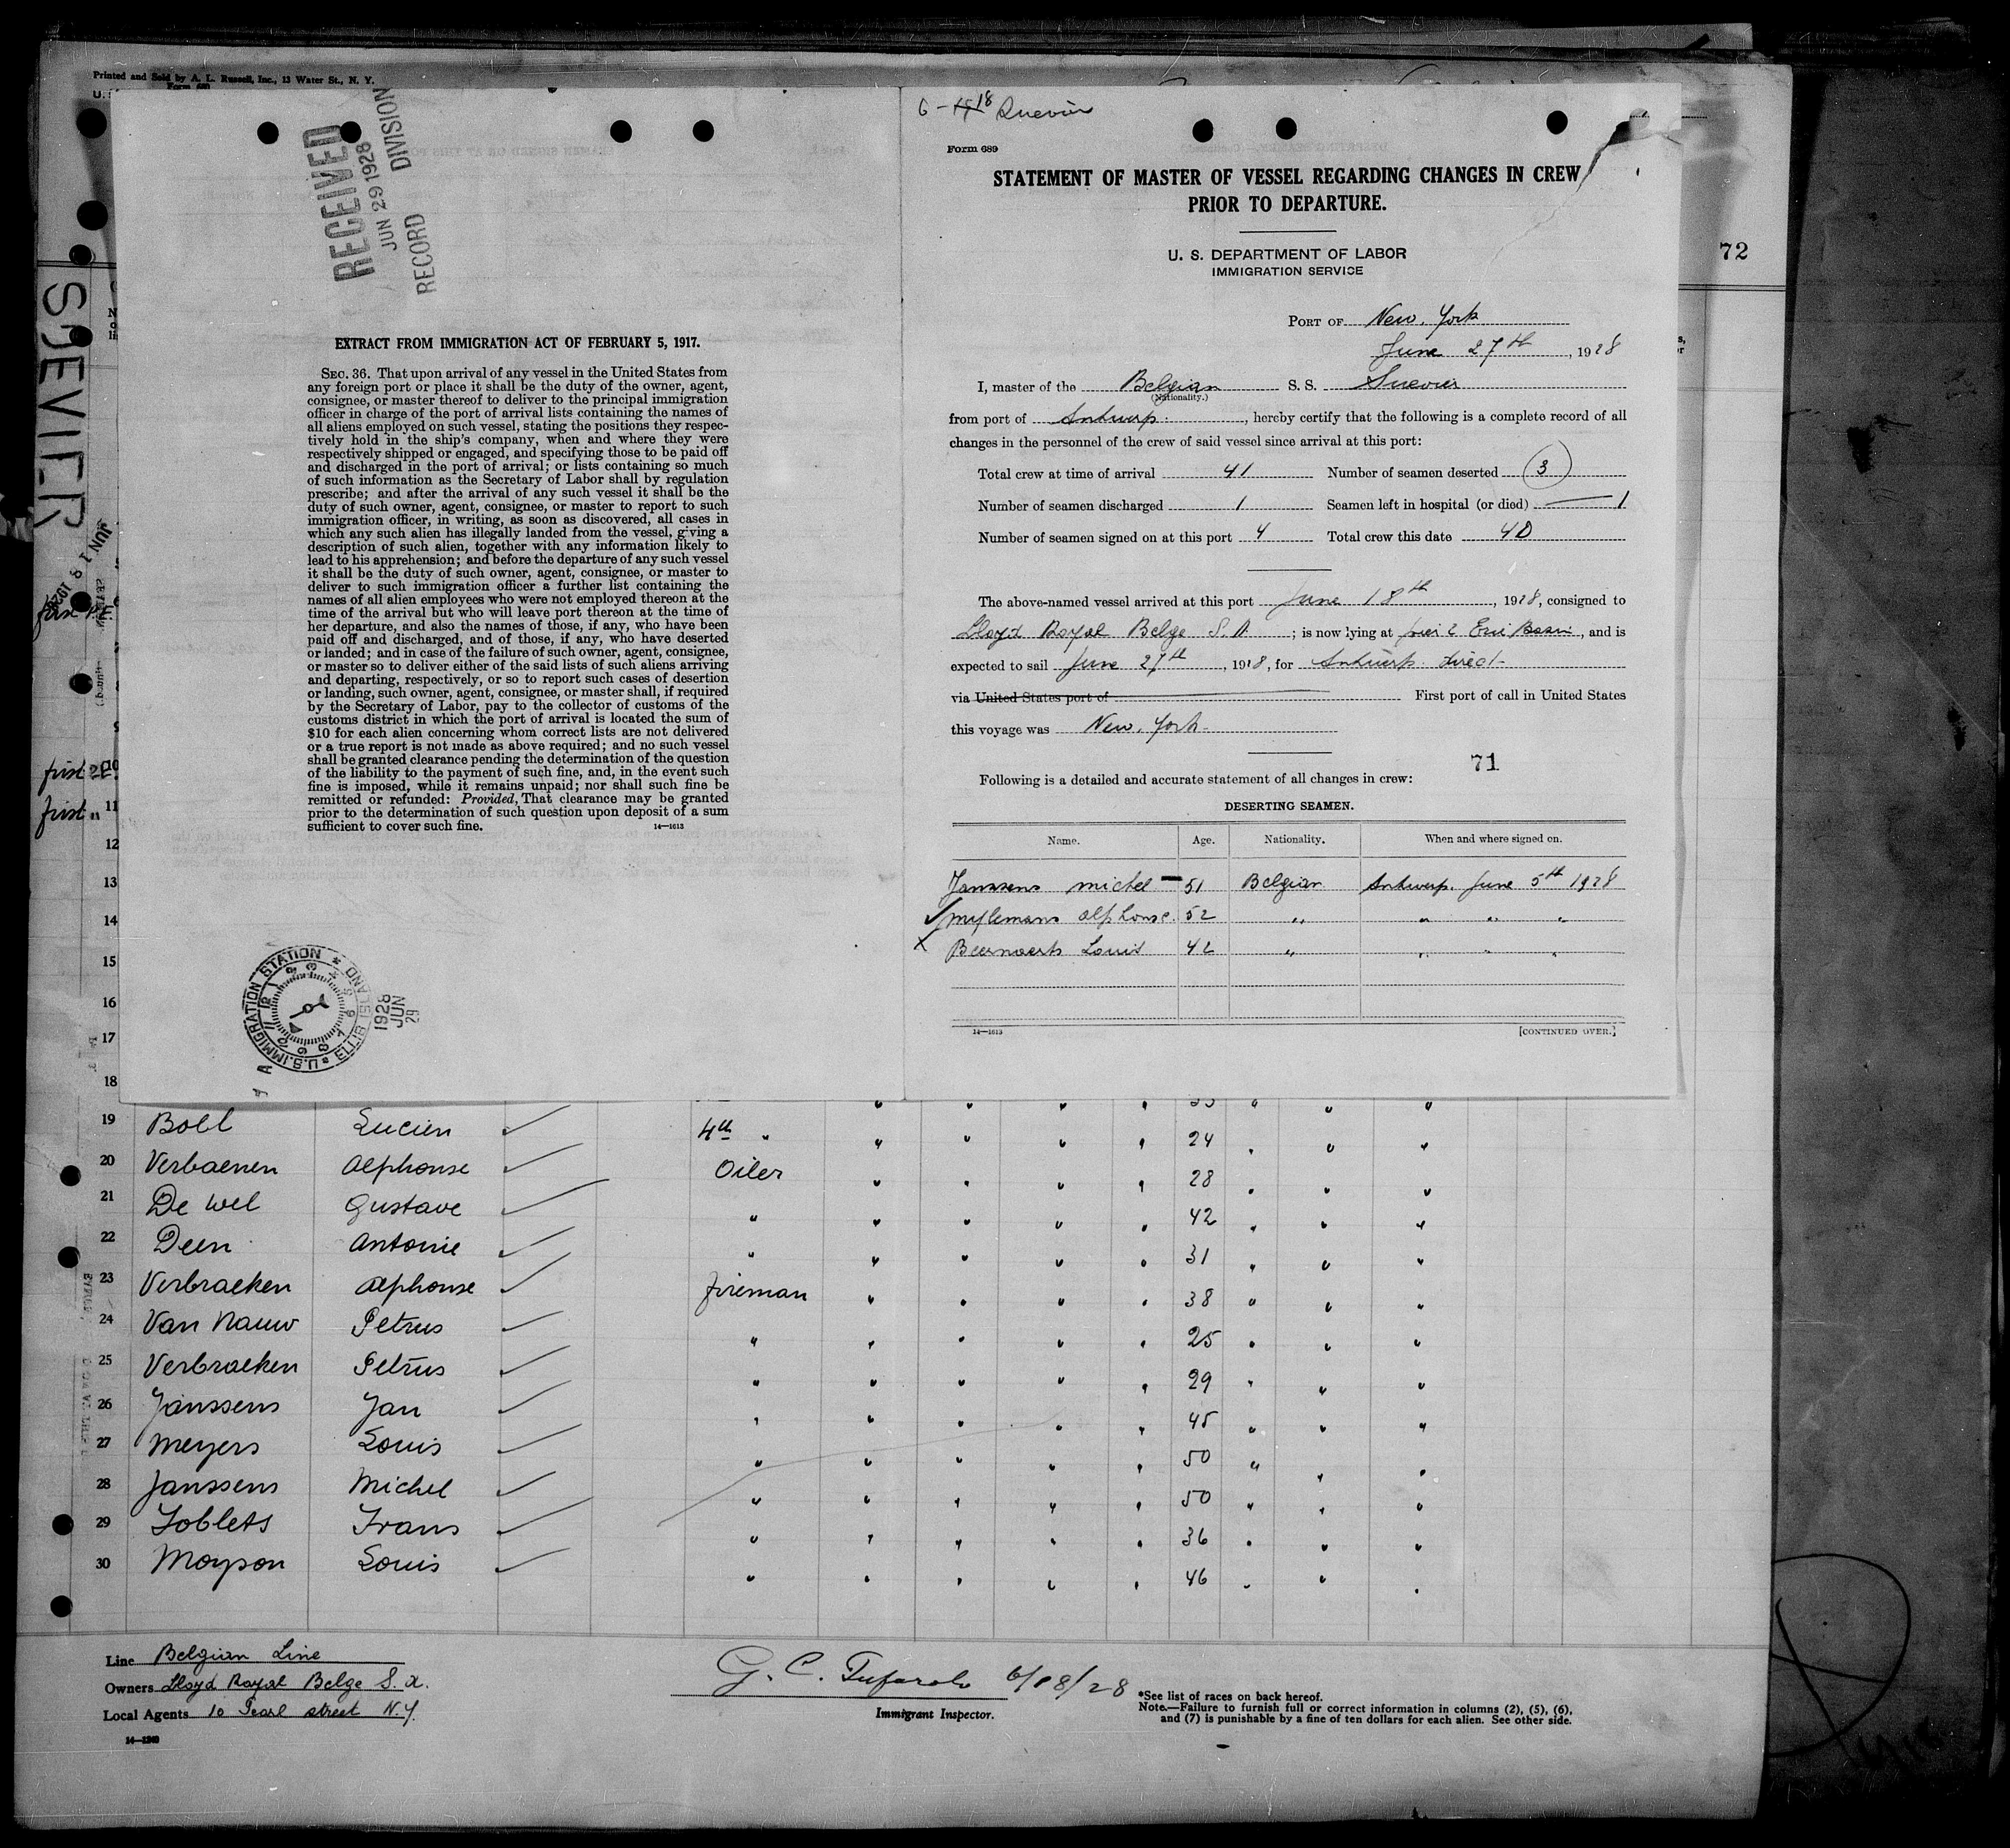 Printed and Sold by A. L. Russell, Inc., 13 Water St., N. Y.
Form 680
RECEIVED
JUN 29 1928
RECORD DIVISION
SUEVIER
JUN 18 1928
EXTRACT FROM IMMIGRATION ACT OF FEBRUARY 5, 1917.
SEC. 36. That upon arrival of any vessel in the United States from
any foreign port or place it shall be the duty of the owner, agent,
consignee, or master thereof to deliver to the principal immigration
officer in charge of the port of arrival lists containing the names of
all aliens employed on such vessel, stating the positions they respec-
tively hold in the ship's company, when and where they were
respectively shipped or engaged, and specifying those to be paid off
and discharged in the port of arrival; or lists containing so much
of such information as the Secretary of Labor shall by regulation
prescribe; and after the arrival of any such vessel it shall be the
duty of such owner, agent, consignee, or master to report to such
immigration officer, in writing, as soon as discovered, all cases in
which any such alien has illegally landed from the vessel, giving a
description of such alien, together with any information likely to
lead to his apprehension; and before the departure of any such vessel
it shall be the duty of such owner, agent, consignee, or master to
deliver to such immigration officer a further list containing the
names of all alien employees who were not employed thereon at the
time of the arrival but who will leave port thereon at the time of
her departure, and also the names of those, if any, who have been
paid off and discharged, and of those, if any, who have deserted
or landed; and in case of the failure of such owner, agent, consignee,
or master so to deliver either of the said lists of such aliens arriving
and departing, respectively, or so to report such cases of desertion
or landing, such owner, agent, consignee, or master shall, if required
by the Secretary of Labor, pay to the collector of customs of the
customs district in which the port of arrival is located the sum of
$10 for each alien concerning whom correct lists are not delivered
or a true report is not made as above required; and no such vessel
shall be granted clearance pending the determination of the question
of the liability to the payment of such fine, and, in the event such
fine is imposed, while it remains unpaid; nor shall such fine be
remitted or refunded: Provided, That clearance may be granted
prior to the determination of such question upon deposit of a sum
sufficient to cover such fine. 14—1613
U.S. IMMIGRATION STATION ★ ELLIS ISLAND
1928 JUN 29
6 - 18 Suevier
Form 689
STATEMENT OF MASTER OF VESSEL REGARDING CHANGES IN CREW
PRIOR TO DEPARTURE.
U. S. DEPARTMENT OF LABOR
IMMIGRATION SERVICE
72
PORT OF New. York
June 27th, 1928
I, master of the Belgian S. S. Suevier
(Nationality.)
from port of Antwerp., hereby certify that the following is a complete record of all
changes in the personnel of the crew of said vessel since arrival at this port:
Total crew at time of arrival 41 Number of seamen deserted 3
Number of seamen discharged 1 Seamen left in hospital (or died) — 1
Number of seamen signed on at this port 4 Total crew this date 40
The above-named vessel arrived at this port June 18th, 1928, consigned to
Lloyd Royal Belge S. A; is now lying at pier 2 Erie Basin, and is
expected to sail June 27th, 1928, for Antwerp direct-
via United States port of First port of call in United States
this voyage was New. York-
71
Following is a detailed and accurate statement of all changes in crew:
DESERTING SEAMEN.
Name. Age. Nationality. When and where signed on.
Janssens michel — 51 Belgian Antwerp. June 5th 1928
✓ Mylemans alphonse. 52 " " " "
x Beernaerts Louis 42 " " " "
14—1613 [CONTINUED OVER.]
first
10
first " 11
12
13
14
15
16
17
18
19 Boll Lucien ✓ 4th " " " " " 24 " " "
20 Verbaenen Alphonse ✓ Oiler " " " " 28 " " "
21 De Wel Gustave ✓ " " " " " 42 " " "
22 Deen Antonie ✓ " " " " " 31 " " "
23 Verbraeken alphonse ✓ fireman " " " " 38 " " "
24 Van Nauw Petrus ✓ " " " " " 25 " " "
25 Verbraeken Petrus ✓ " " " " " 29 " " "
26 Janssens Jan ✓ " " " " " 45 " " "
27 Meyers Louis ✓ " " " " " 50 " " "
28 Janssens Michel ✓ " " " " " 50 " " "
29 Joblets Frans ✓ " " " " " 36 " " "
30 Moyson Louis ✓ " " " " " 46 " " "
Line Belgian Line
Owners Lloyd Royal Belge S. A.
Local Agents 10 Pearl street N.Y.
14—1240
G. C. Tufarolo 6/18/28
Immigrant Inspector.
*See list of races on back hereof.
Note.—Failure to furnish full or correct information in columns (2), (5), (6),
and (7) is punishable by a fine of ten dollars for each alien. See other side.